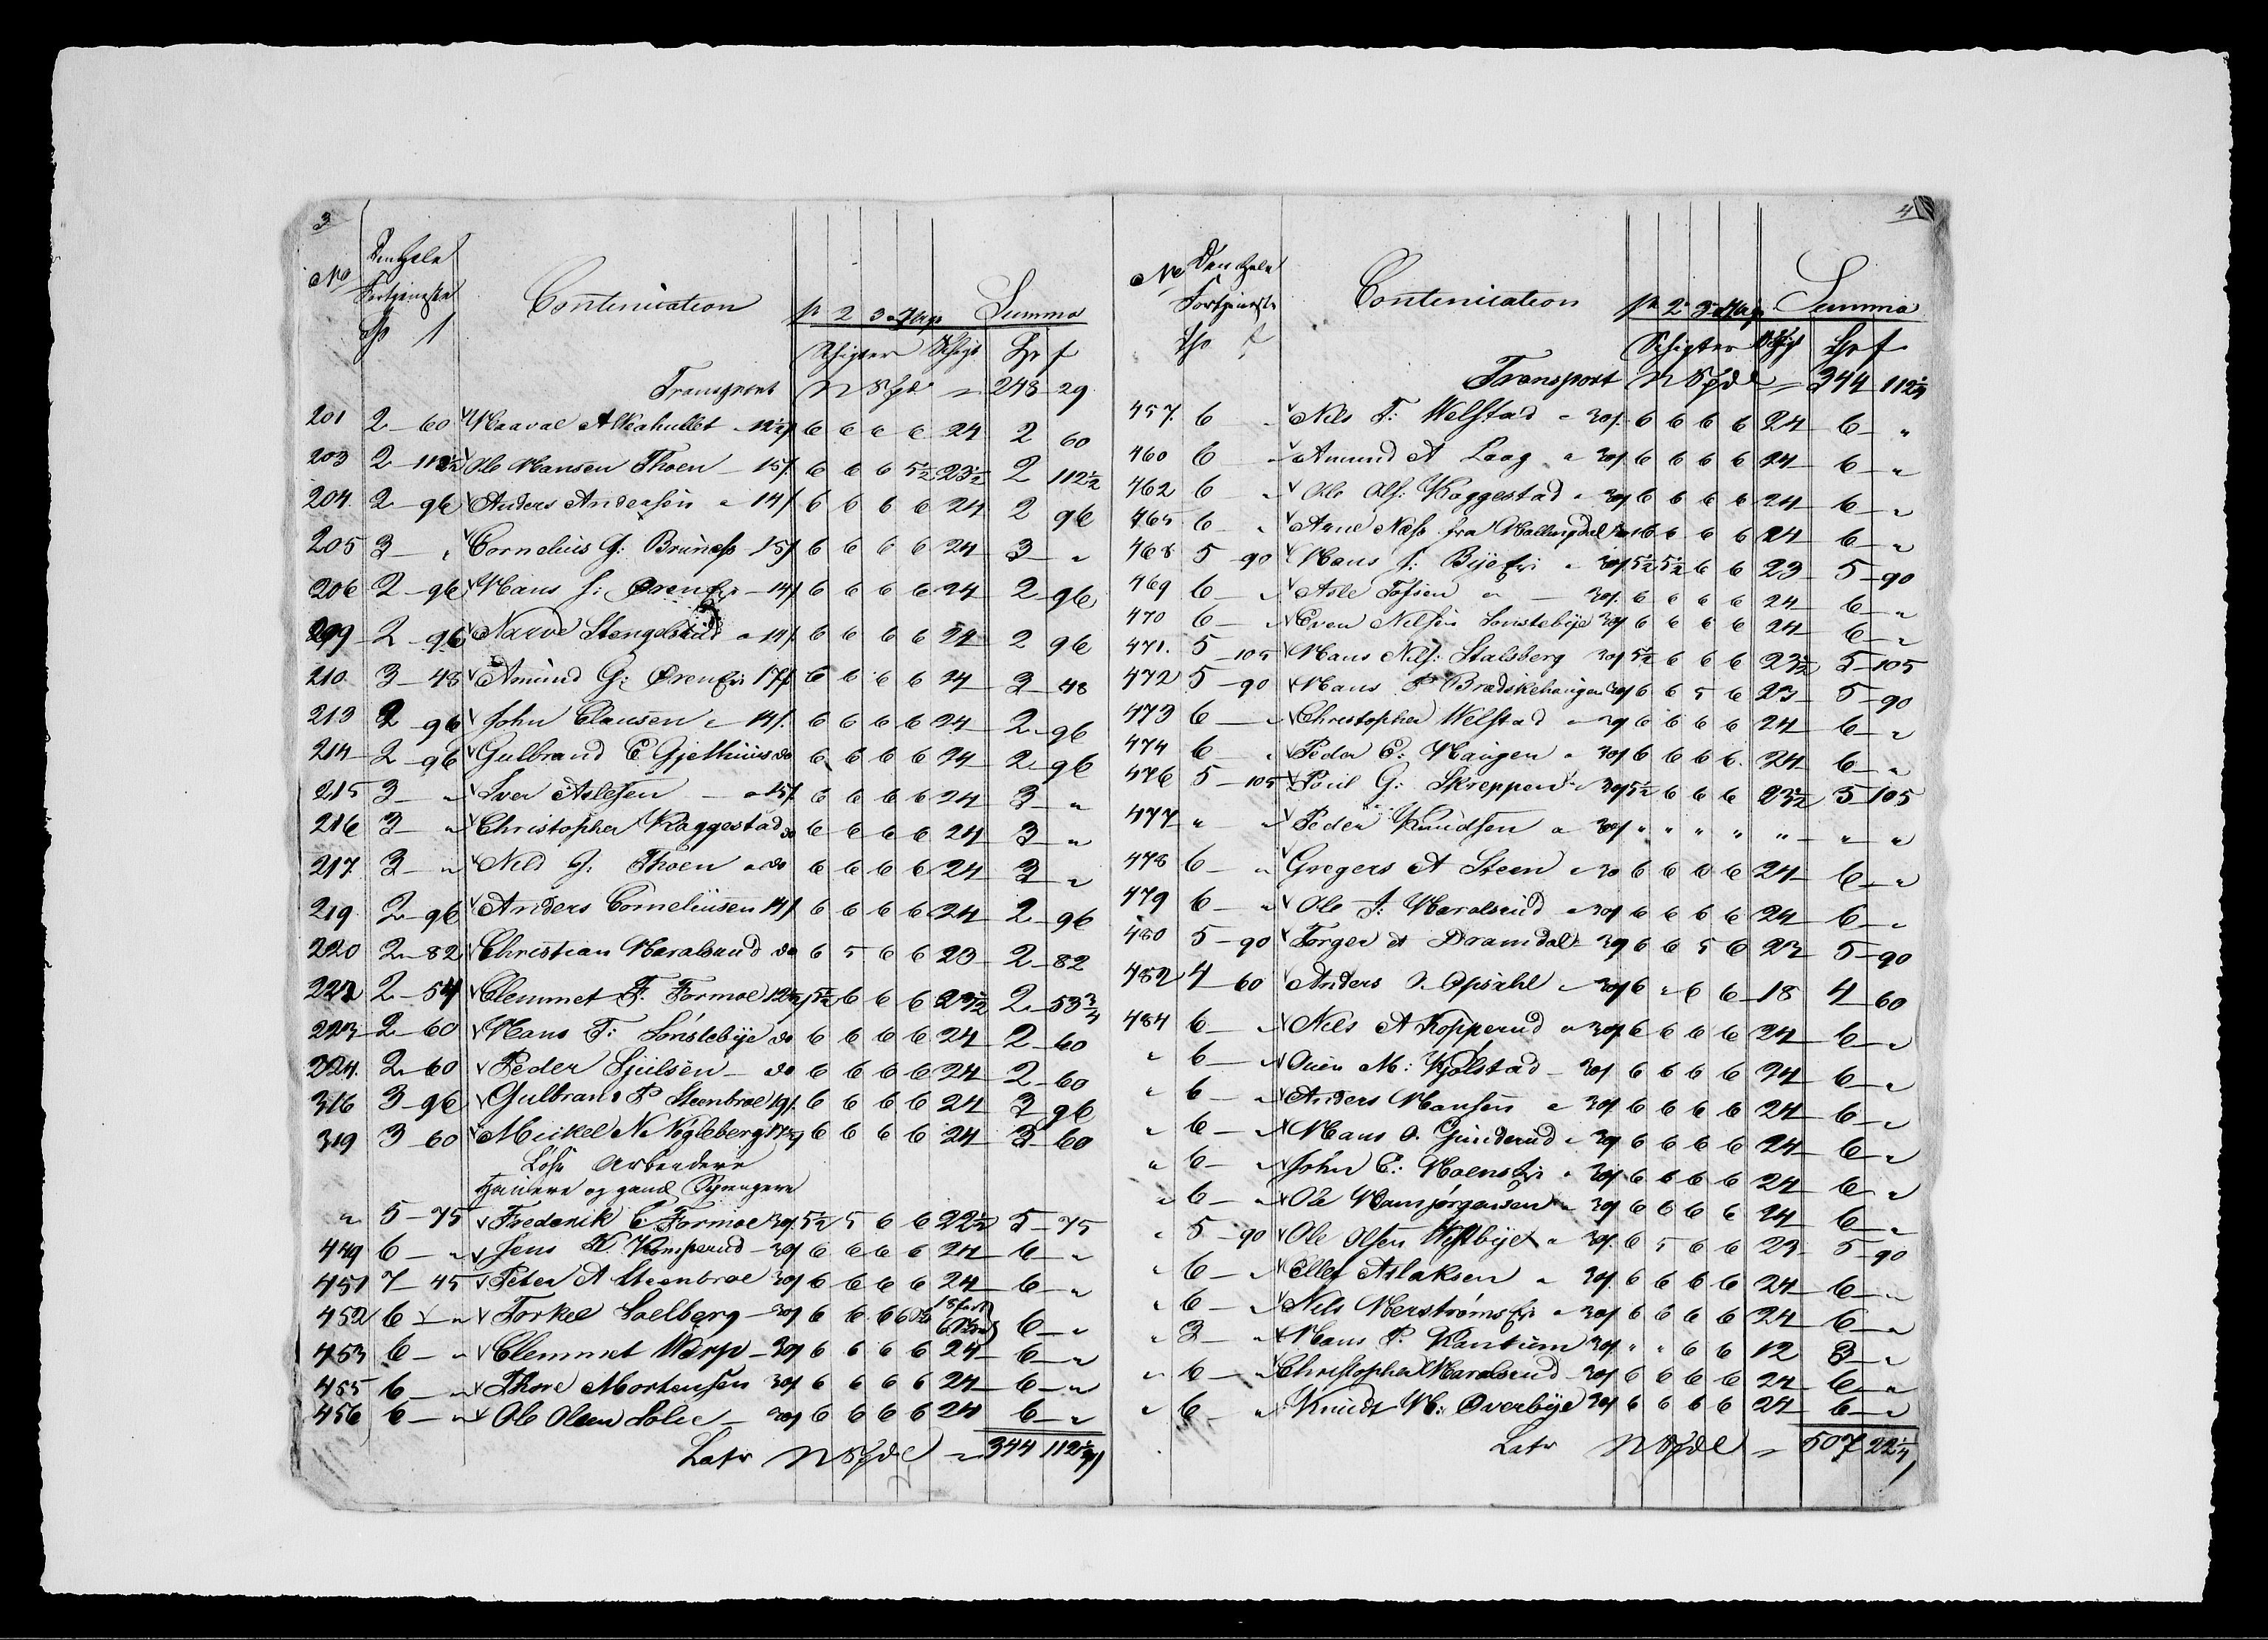 3
No Den hele Fortjeneste Contenuation 1te 2 3 4 Uge Summa
Sp ſ Schigter Schigt Sp ſ
Transport 248 29
201 2 60 Haavae A Kahullet 12½ 6 6 6 6 24 2 60
203 2 112½ Ole Hansen Thoen 15ſ 6 6 6 5½ 23½ 2 112½
204 2 96 Anders Andersen 14ſ 6 6 6 6 24 2 96
205 3 " Cornelius G: Brunæss 15ſ 6 6 6 6 24 3 "
206 2 96 Hans J: Øren 14ſ 6 6 6 6 24 2 96
209 2 96 Narve Stengelsrud 14ſ 6 6 6 6 24 2 96
210 3 48 Amund G: Øren 17ſ 6 6 6 6 24 3 48
213 2 96 John Clausen 14ſ 6 6 6 6 24 2 96
214 2 96 Gulbrand C Gjethuus do 6 6 6 6 24 2 96
215 3 " Iver Aslesen 15ſ 6 6 6 6 24 3 "
216 3 " Christopher Kaggestad do 6 6 6 6 24 3 "
217 3 " Nils J: Thoen do 6 6 6 6 24 3 "
219 2 96 Anders Corneliusen 14ſ 6 6 6 6 24 2 96
220 2 82 Christian Haralsrud do 6 5 6 6 23 2 82
222 2 54 Clemmet F: Formoe 12½ 5½ 6 6 6 23½ 2 53¾
223 2 60 Hans T: Sønstebÿe do 6 6 6 6 24 2 60
224 2 60 Peder Siulsen do 6 6 6 6 24 2 60
316 3 96 Gulbran P Steenbroe 19ſ 6 6 6 6 24 3 96
319 3 60 Mickel N. Nøgleberg 17½ 6 6 6 6 24 3 60
Løse Arbeidere
Hauere og gaml Sprengere
" 5 75 Frederik C. Formoe 30ſ 5½ 5 6 6 22½ 5 75
449 6 " Jens K. Komperud 30ſ 6 6 6 6 24 6 "
451 7 45 Peter A Steenbroe 30ſ 6 6 6 6 24 6 "
452 6 " Torkel Soelberg 30ſ 6 6 6 6 18 6 6 "
453 6 " Clemmet Warp 30ſ 6 6 6 6 24 6 "
455 6 " Thore Mortensen 30ſ 6 6 6 6 24 6 "
456 6 " Ole Olsen Solie 30ſ 6 6 6 6 24 6 "
Latr 344 112¼
4
No Den hele Fortjeneste Contenuation 1te 2 3 4 Uge Summa
Sp ſ Schigter Schigt Sp ſ
Transport 344 112¼
457 6 " Nils T: Welstad 30ſ 6 6 6 6 24 6 "
460 6 " Amund A Laag 30ſ 6 6 6 6 24 6 "
462 6 " Ole Ols: Kaggestad 30ſ 6 6 6 6 24 6 "
465 6 " Arne Næss fra Hallingdal 6 6 6 6 24 6 "
468 5 90 Hans J: Bÿe 30ſ 5½ 5½ 6 6 23 5 90
469 6 " Asle Tossen 30ſ 6 6 6 6 24 6 "
470 6 " Even Nilsen Sønstebÿe 30ſ 6 6 6 6 24 6 "
471 5 105 Hans Nils: Stalsberg 30ſ 5½ 6 6 6 23½ 5 105
472 5 90 Hans P Brædskehaugen 30ſ 6 6 5 6 23 5 90
473 6 " Christopher Welstad 30ſ 6 6 6 6 24 6 "
474 6 " Peder E: Haugen 30ſ 6 6 6 6 24 6 "
476 5 105 Poul G: Skreppen 30ſ 5½ 6 6 6 23½ 5 105
477 " " Peder Knudsen 30ſ " " " " " " "
478 6 " Gregers A Steen 30 6 6 6 6 24 6 "
479 6 " Ole J: Haralsrud 30ſ 6 6 6 6 24 6 "
480 5 90 Torger A Dramdal 30ſ 6 6 5 6 23 5 90
482 4 60 Anders O. Opsahl 30ſ 6 " 6 6 18 4 60
484 6 " Nils A Kopperud 30ſ 6 6 6 6 24 6 "
" 6 " M: Kjølstad 30ſ 6 6 6 6 24 6 "
" 6 " Anders Hansen 30ſ 6 6 6 6 24 6 "
" 6 " Hans O. Gunderud 30ſ 6 6 6 6 24 6 "
" 6 " John E: 30ſ 6 6 6 6 24 6 "
" 6 " Ole Hansjørgensen 30ſ 6 6 6 6 24 6 "
" 5 90 Ole Olsen Westbÿe 30ſ 6 5 6 6 23 5 90
" 6 " Ellef Aslaksen 30ſ 6 6 6 6 24 6 "
" 6 " Nils 30ſ 6 6 6 6 24 6 "
" 3 " Hans P. 30ſ " " 6 6 12 3 "
" 6 " Christopher Haralsrud 30ſ 6 6 6 6 24 6 "
" 6 " Knudt H: Overbÿe 30ſ 6 6 6 6 24 6 "
Latr 507 22¼